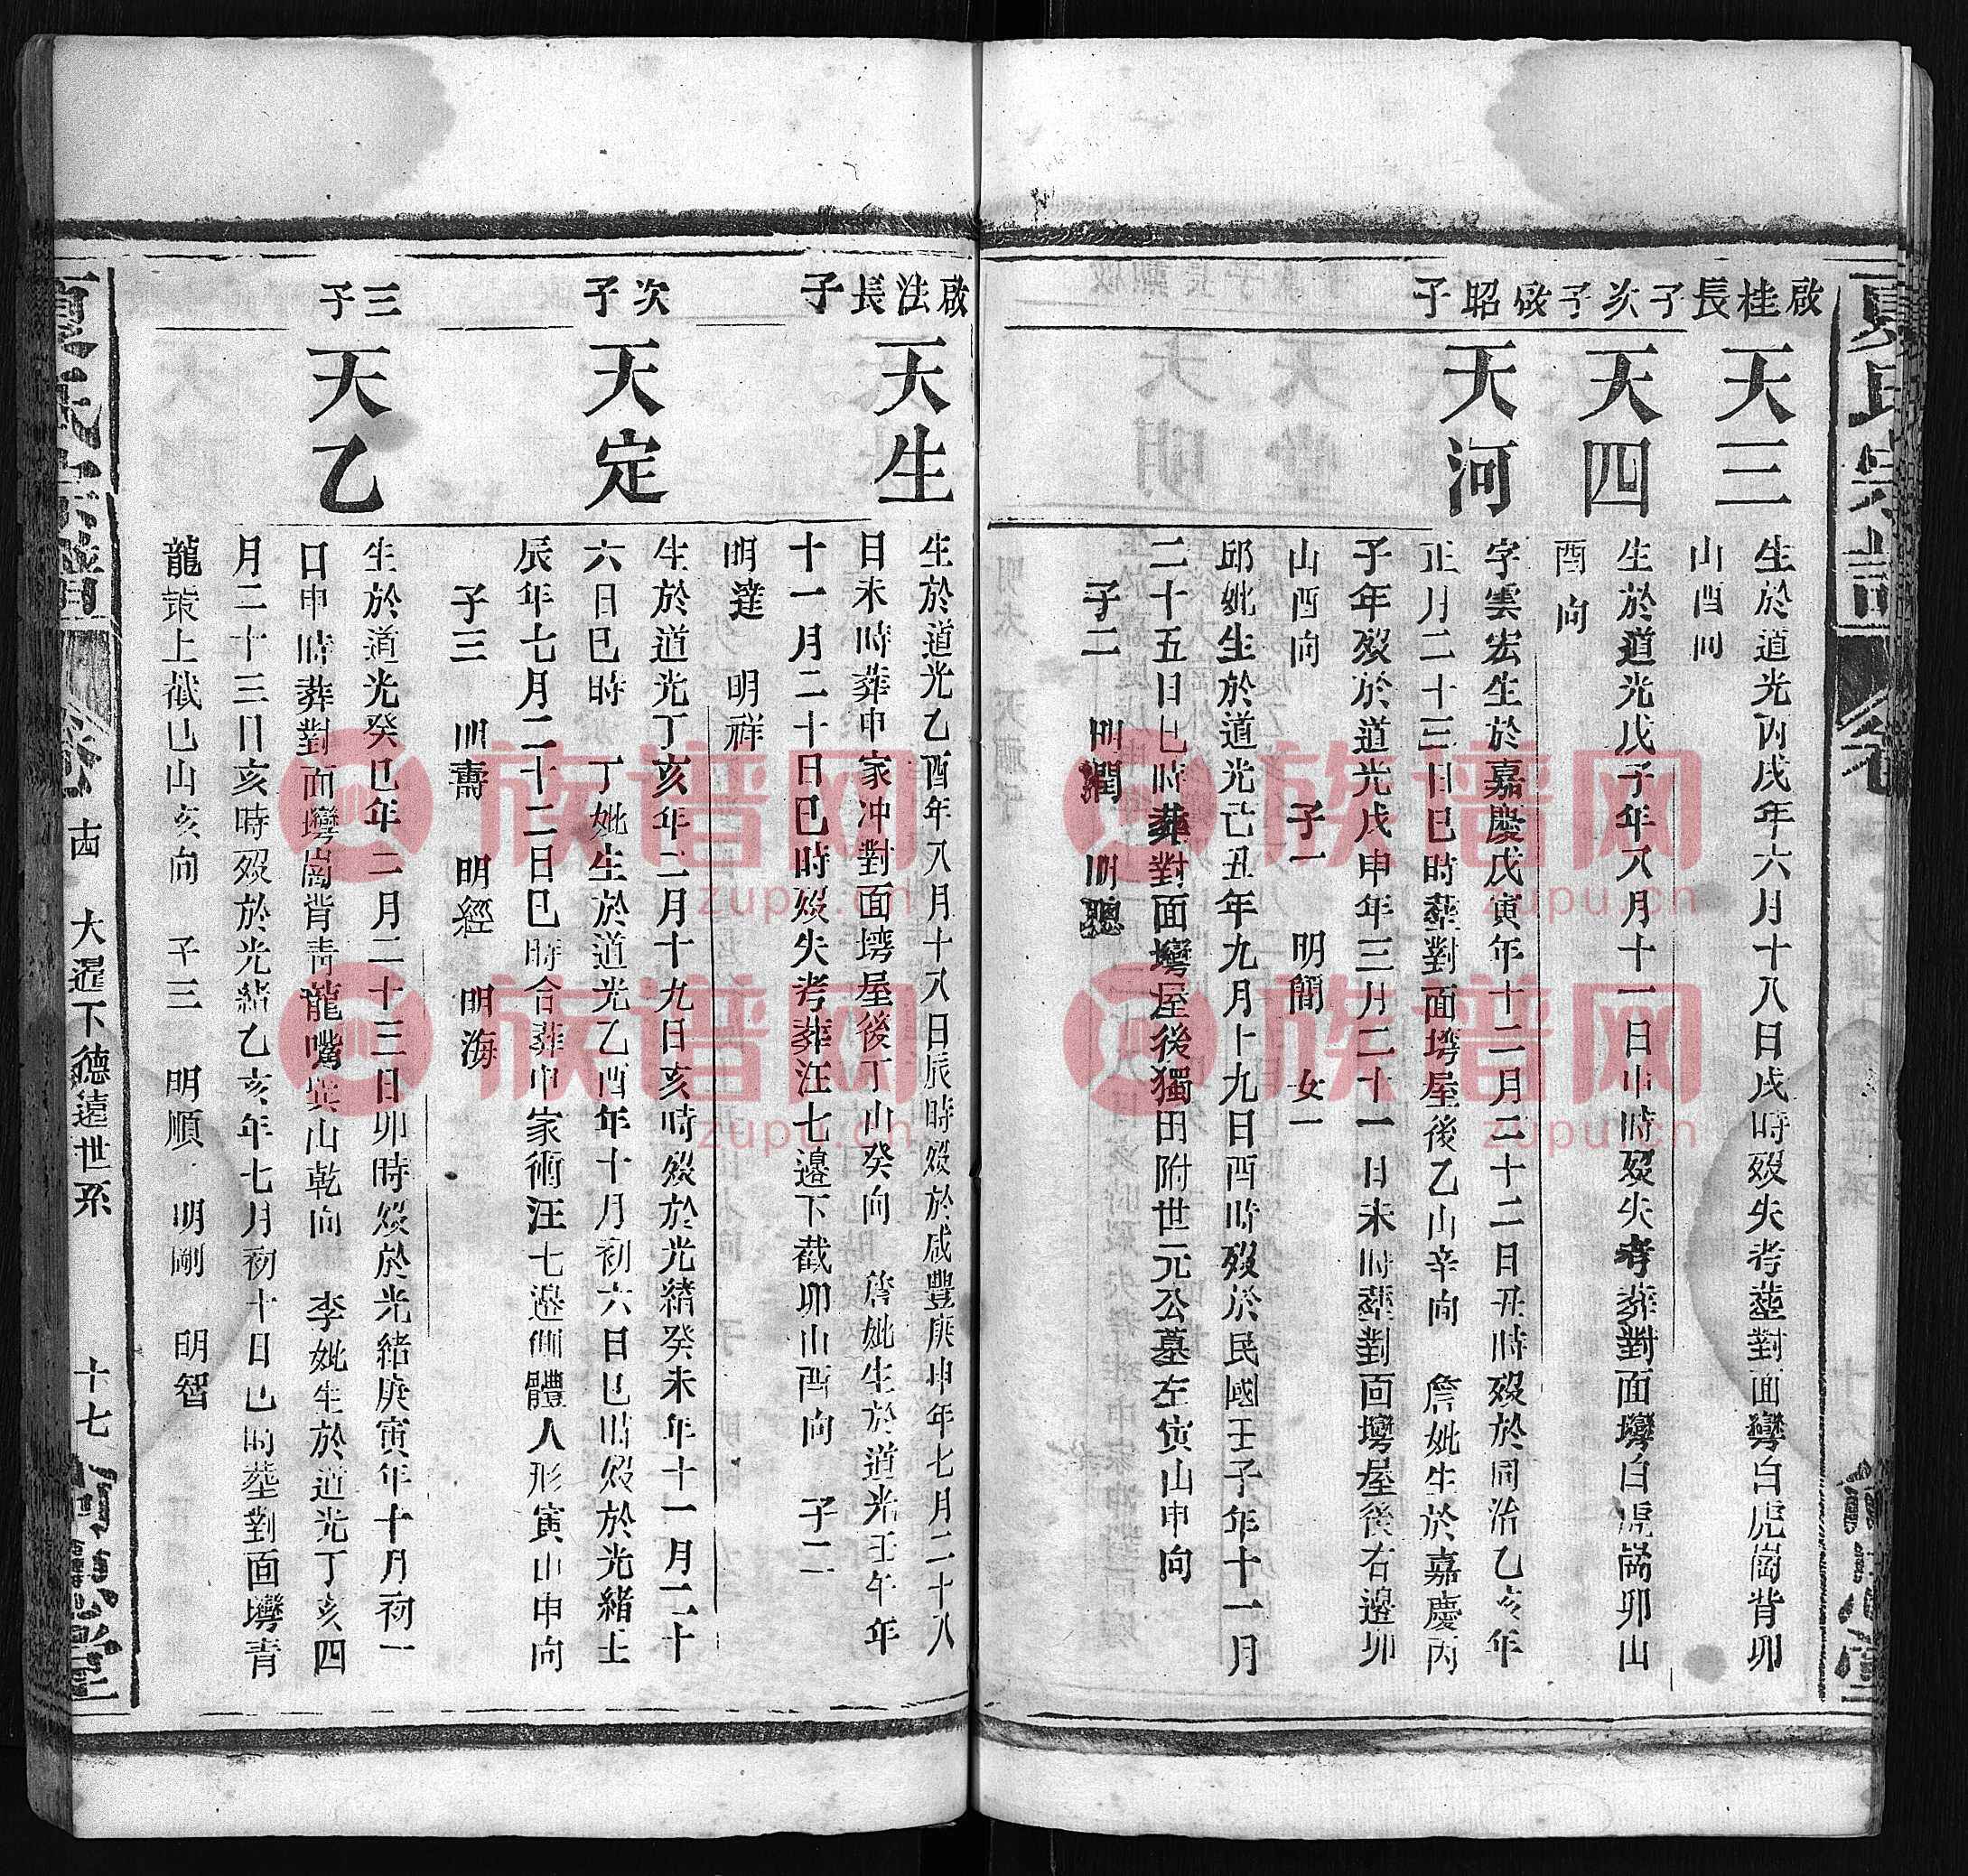 夏氏宗譜
卷
啟桂長子
次子
啟昭子
天三
生於道光丙戌年六月十八日戌時歿失考塟對面彎白虎崗背卯
山酉向
天四
生於道光戊子年八月十一日申時歿失考葬對面塆白虎崗卯山
酉向
天河
字雲宏生於嘉慶戊寅年十二月三十二日丑時歿於同治乙亥年
正月二十三日巳時塟對面塆屋後乙山辛向 詹妣生於嘉慶丙
子年歿於道光戊申年三月二十一日未時塟對面塆屋後右邊卯
山酉向 子一 明簡 女一
邱妣生於道光己丑年九月十九日酉時歿於民國壬子年十一月
二十五日巳時葬對面塆屋後獨田附世元公墓左寅山申向
子二 明潤 明聰
啟法長子
天生
生於道光乙酉年八月十八日辰時歿於咸豐庚申年七月二十八
日未時葬申家冲對面塆屋後丁山癸向 詹妣生於道光壬午年
十一月二十日巳時歿失考葬汪七邊下截卯山酉向 子二
明達 明祥
次子
天定
生於道光丁亥年二月十九日亥時歿於光緒癸未年十一月二十
六日巳時 丁妣生於道光乙酉年十月初六日巳時歿於光緒壬
辰年七月二十二日巳時合葬申家術汪七邊側體人形寅山申向
子三 明壽 明經 明海
三子
天乙
生於道光癸巳年二月二十三日卯時歿於光緒庚寅年十月初一
日申時葬對面塆崗背青龍嘴巽山乾向 李妣生於道光丁亥四
月二十三日亥時歿於光緒乙亥年七月初十日巳時塟對面塆青
龍嘴上截巳山亥向 子三 明順 明剛 明智
夏氏宗譜
卷
大暹下德遠世系
十七
族谱网
zupu.cn
族谱网
zupu.cn
族谱网
zupu.cn
族谱网
zupu.cn